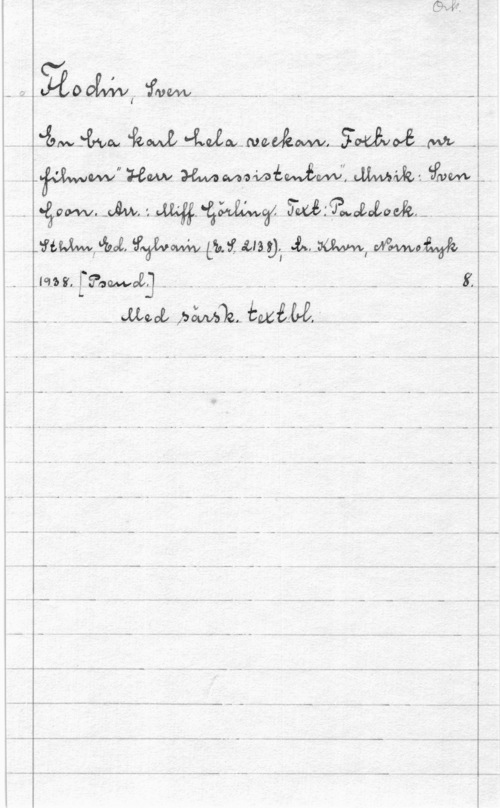 Ork.
Flodin, Sven
En bra karl hela veckan. Foxtrot ur
filmen "Herr Husassistenten". Musik: Sven
Goon. Arr.: Miff Görling. Text: Paddock.
Sthlm, Ed. Sylvain (E.S. 2138); tr. Khvn, Nornotryk
1938. [Pseud.] 8.
Med särsk. textbl.